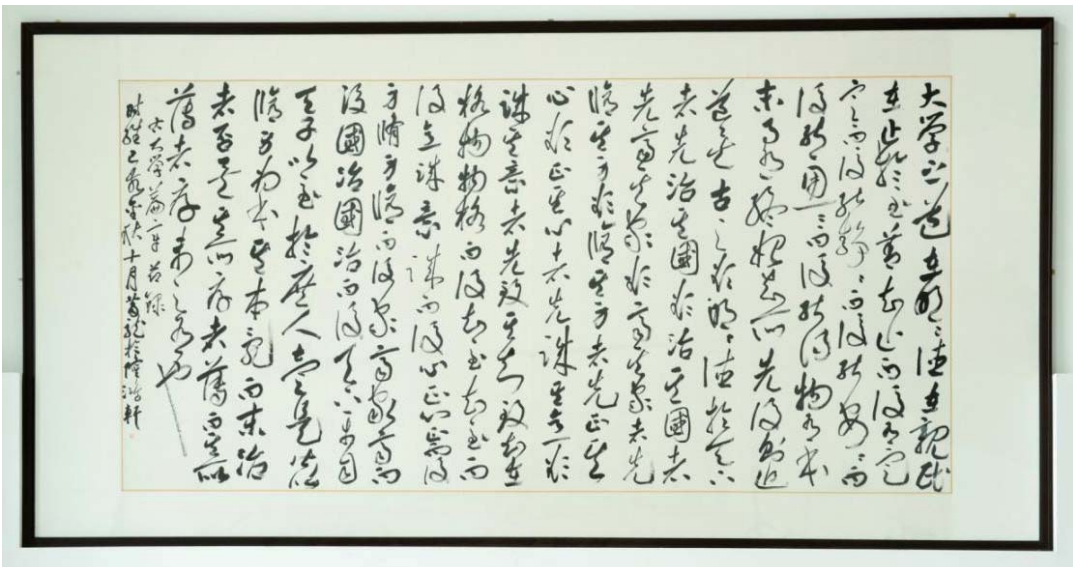 大学之道在明〻德在親民
在止於至善知止而後有定
定而後能靜〻而後能安〻而
後能慮〻而後能得物有本
末事有終始知所先後則近
道矣古之欲明〻德於天下
者先治其國欲治其國者
先齊其家欲齊其家者先
脩其身欲脩其身者先正其
心欲正其心者先誠其意欲
誠其意者先致其知致知在
格物物格而後知至知至而
後意誠意誠而後心正心正而後
身脩身脩而後家齊家齊而
後國治國治而後天下平自
天子以至於庶人壹是皆以
脩身为本其本亂而末治
者否矣其所厚者薄而其所
薄者厚未之有也
大学篇一章 錄
時維己亥金秋十月 於 鴻軒